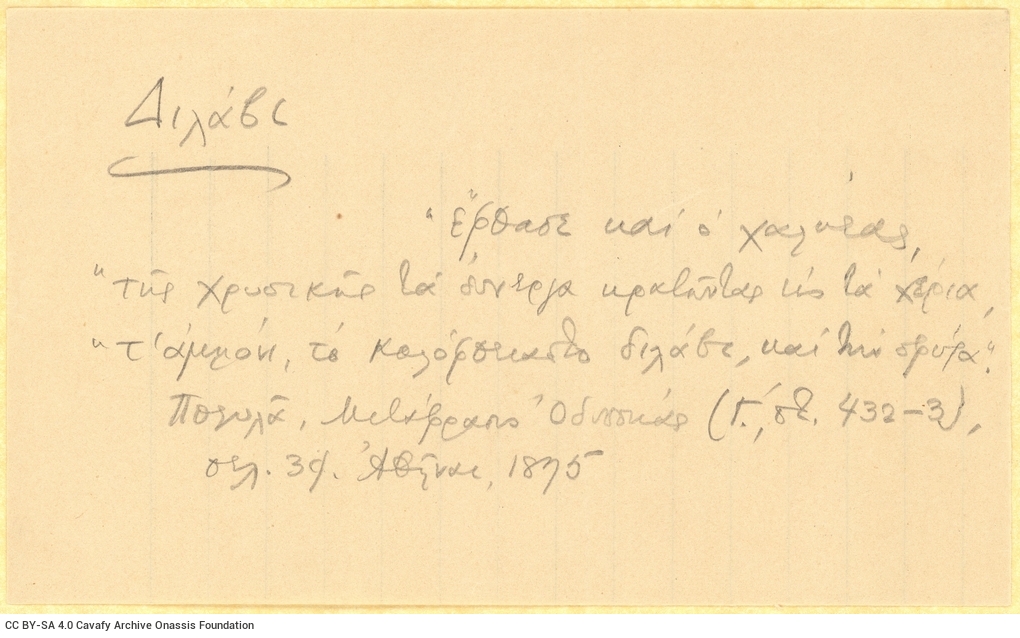 Διλάβι
"ἔφθασε καὶ ὁ χαλκέας,
"τῆς χρυσικῆς τὰ σύνεργα κρατῶντας εἰς τὰ χέρια,
"τ' ἀμμόνι, τὸ καλόφθειαστο διλάβι, καὶ τὴν σφύρα".
Πολυλᾶ, Μετάφρασις Ὀδυσσείας (Γ', στ. 432-3),
σελ. 39. Ἀθῆναι, 1875
CC BY-SA 4.0 Cavafy Archive Onassis Foundation